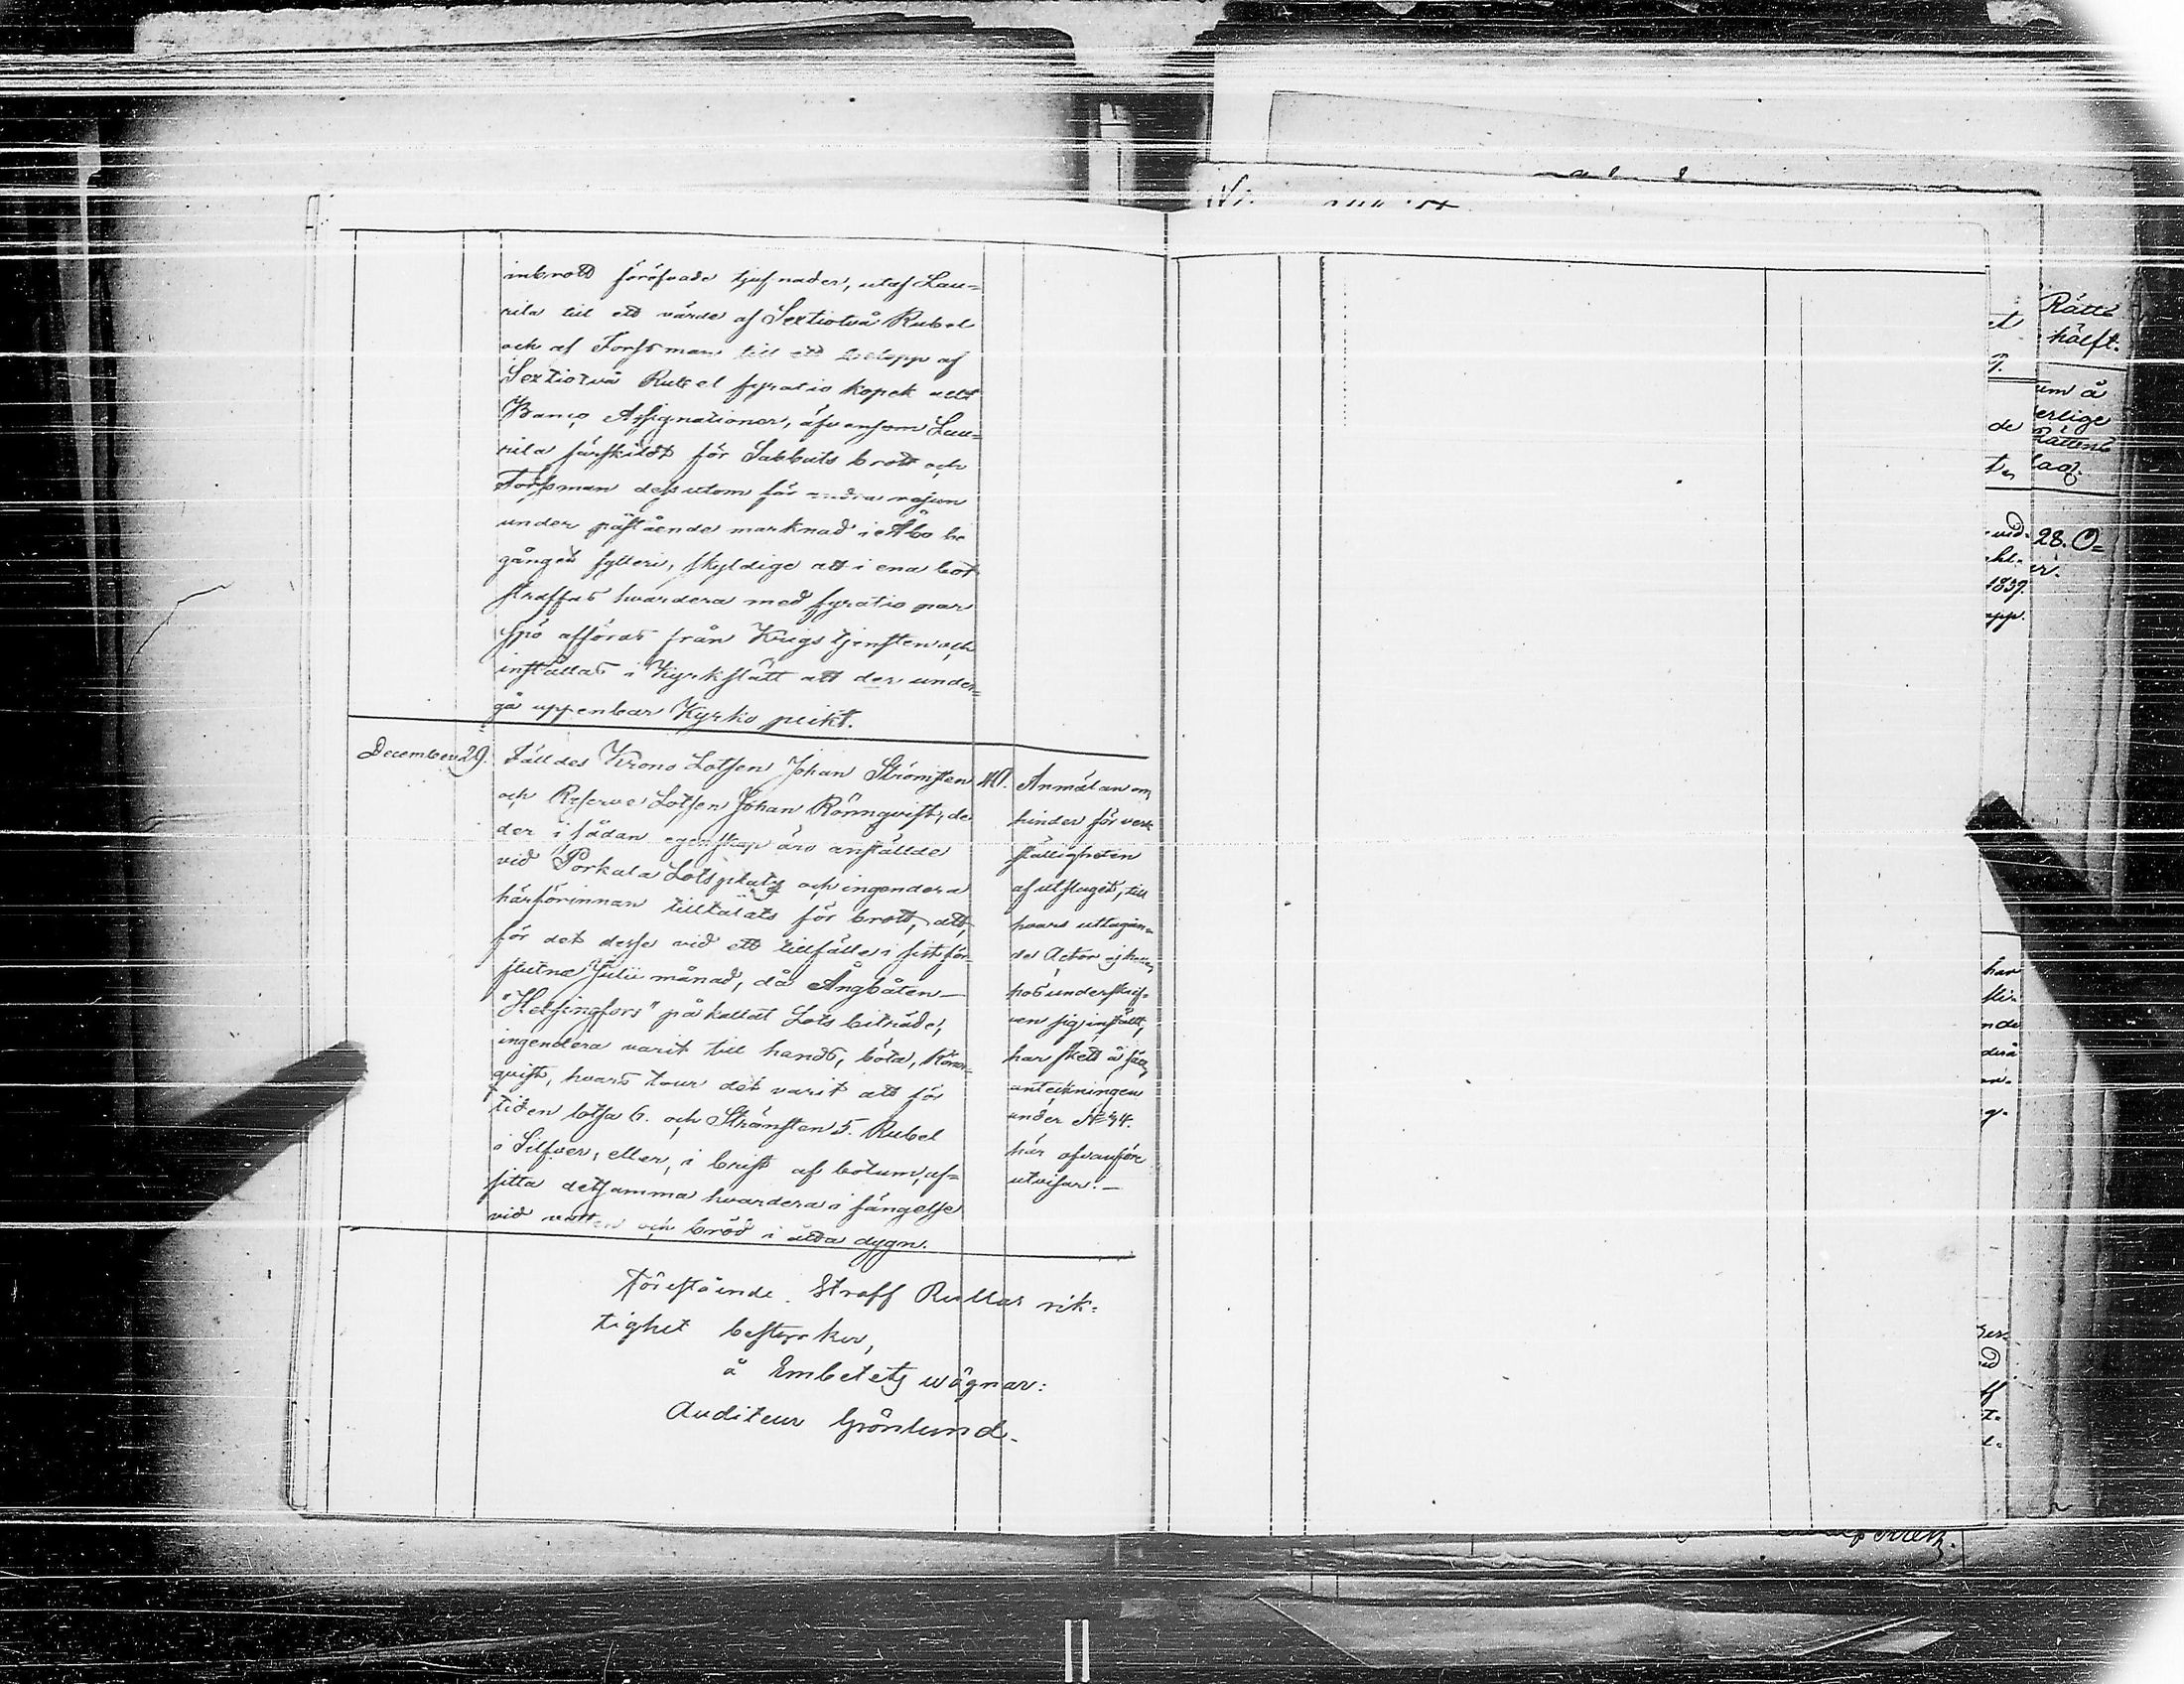 inbrott föröfvade tjufnader, utaf Lau=
rila till ett värde af Sextiotvå Rubel
och af Forssman till ett belopp af
Sextiotvå Rubel fyratio kopek allt
Banco Assignationer, äfvensom Lau=
rila särskildt för Sabbats brott och
Forssman dessutom för andra resan
under påstående marknad i Åbo be
gånget fylleri, skyldige att i ena bot
straffas hvardera med fyratio par
spö afföras från Krigstjensten och
inställas i Kyrkslätt att der under=
gå uppenbar Kyrko plikt.
December 29. Fälldes Krono Lotsen Johan Strömsten
och Reserve Lotsen Johan Rönnqvist, de
der i sådan egenskap äro anställde
vid Porkala Lotsplats och ingendera
härförinnan tilltalats för brott, att,
för det desse vid ett tillfälle i sist för=
flutne Julii månad, då Ångbåten
"Helsingfors" påkallat Lots biträde,
ingendera varit till hands, böta, Rönn=
qvist, hvars tour det varit att för
tiden lotsa 6. och Strömsten 5. Rubel
i Silfver, eller, i brist af böter, af=
sitta detsamma hvardera i fängelse
vid vatten och bröd i åtta dygn.
Anmälan om
hinder för verk
ställigheten
af utslaget, till
hvars uttagan=
de Actor ej
hos underskrif=
ven sig inställt,
har skett å sätt
anteckningen
under № 44.
här ofvanföre
utvisar.
Föreståinde Straff Rullas rik=
tighet bestyrker,
å Embetets wägnar:
Auditeur Grönlund.
Rätts
hälft.
um å
erlige
Rättens
lag.
28. O=
1837.